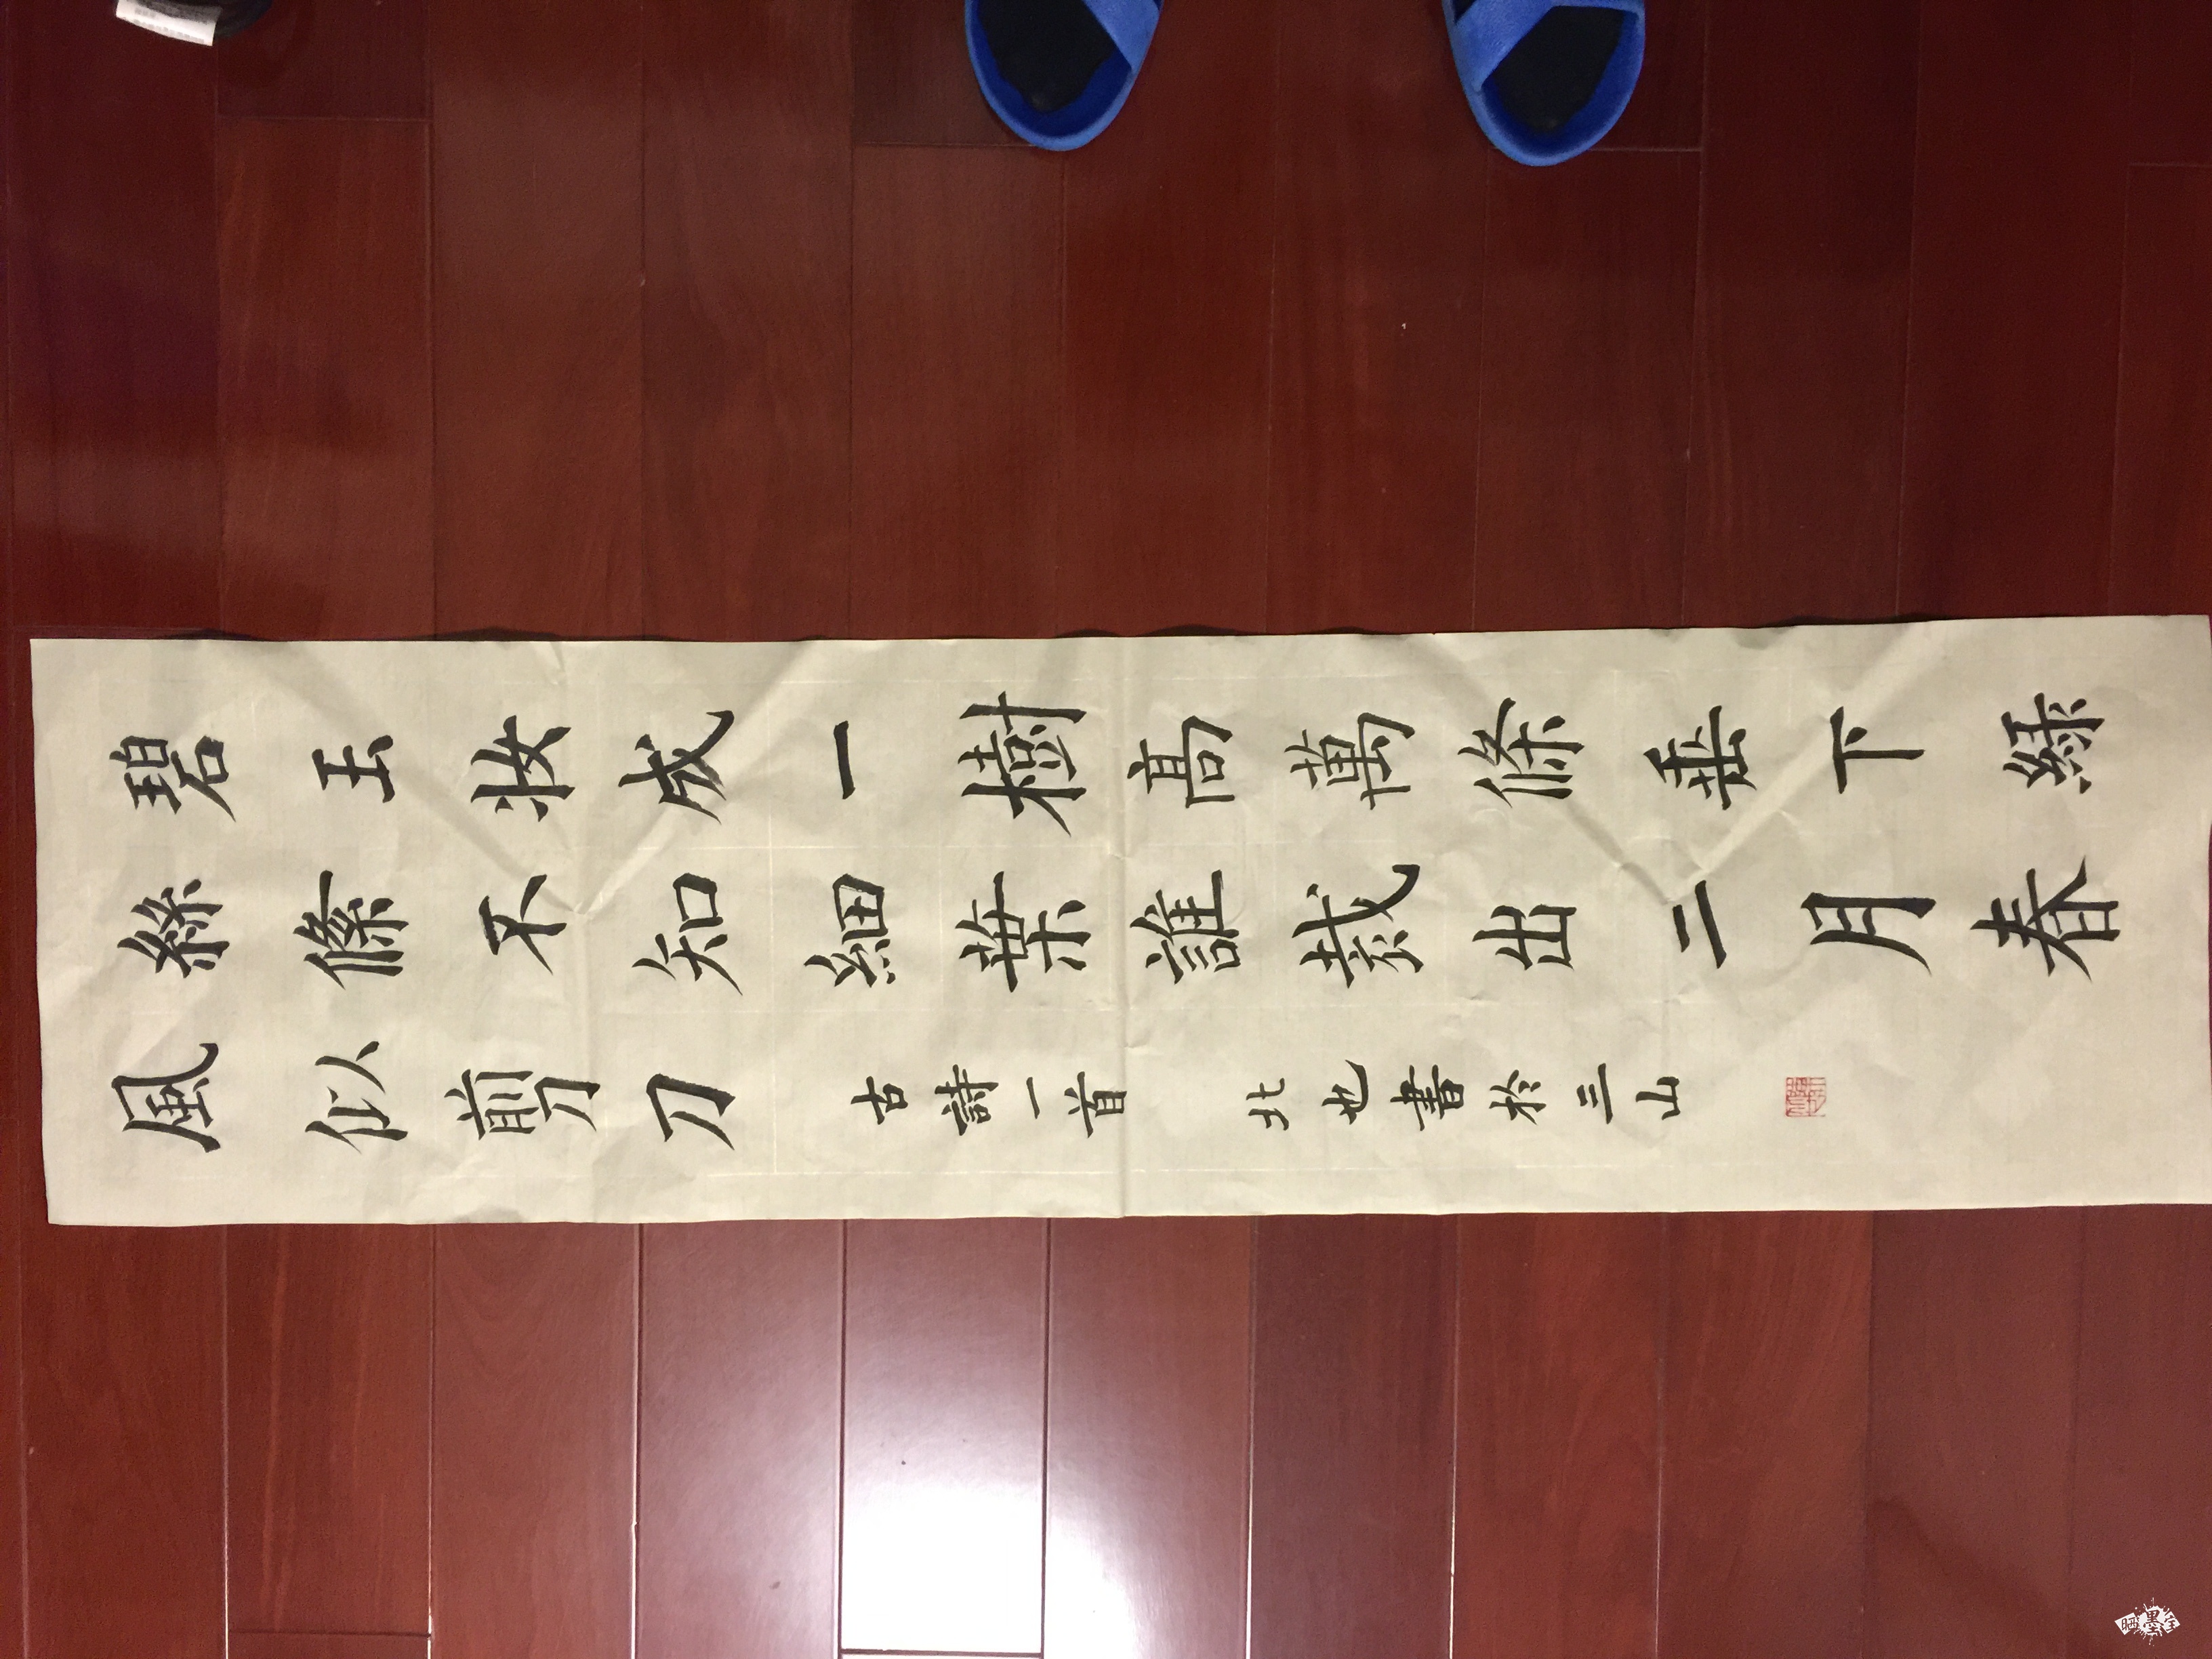 碧玉妝成一樹高萬條垂下綠
絲絛不知細葉誰裁出二月春
風似剪刀 古詩一首 北也書於三山
晒墨宝